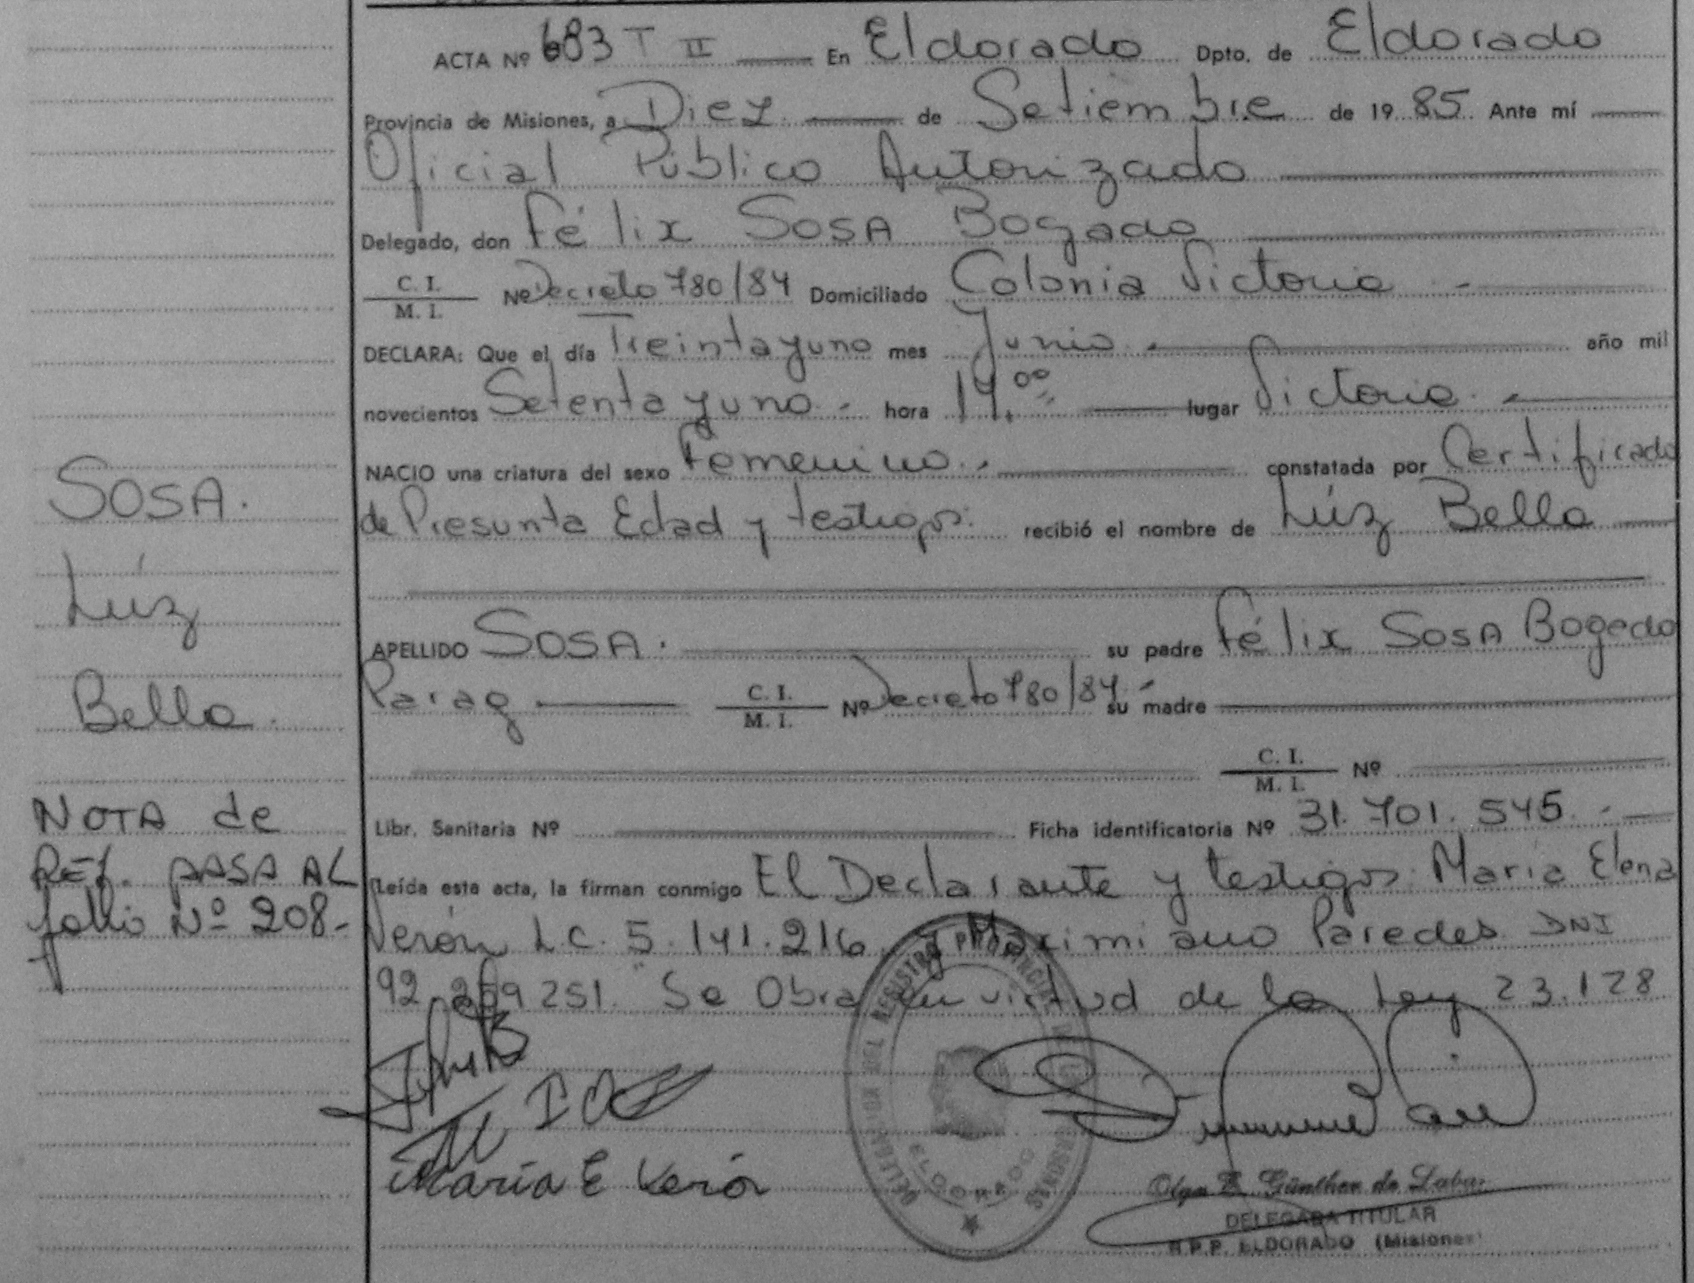 ACTA Nº 683 T II En Eldorado Dpto. de Eldorado
Provincia de Misiones, a Diez de Setiembre de 1985. Ante mí
Oficial Público Autorizado
Delegado, don Félix SOSA Bogado
C. I. / M. I. Nº Decreto 780/84 Domiciliado Colonia Victoria
DECLARA: Que el día Treintayuno mes Junio año mil
novecientos Setentayuno hora 14.00 lugar Victoria
NACIO una criatura del sexo Femenino constatada por Certificado
de Presunta Edad y testigos. recibió el nombre de Lúz Bella
SOSA.
Lúz
Bella.
APELLIDO SOSA. su padre Félix SOSA Bogado
Parag C. I. / M. I. Nº Decreto 780/84 su madre
C. I. / M. I. Nº
Libr. Sanitaria Nº Ficha identificatoria Nº 31.701.545.
NOTA de
REf. PASA AL
follio Nº 208-
Leída esta acta, la firman conmigo El Declarante y testigos: María Elena
Verón L.C. 5.141.216 y Maximiano Paredes DNI
92. 251. Se Obra en virtud de la Ley 23.128
María E Verón
REGISTRO PROVINCIAL DE LAS PERSONAS
ELDORADO
Olga E. Günther de Labar
DELEGADA TITULAR
R.P.P. ELDORADO (Misiones)